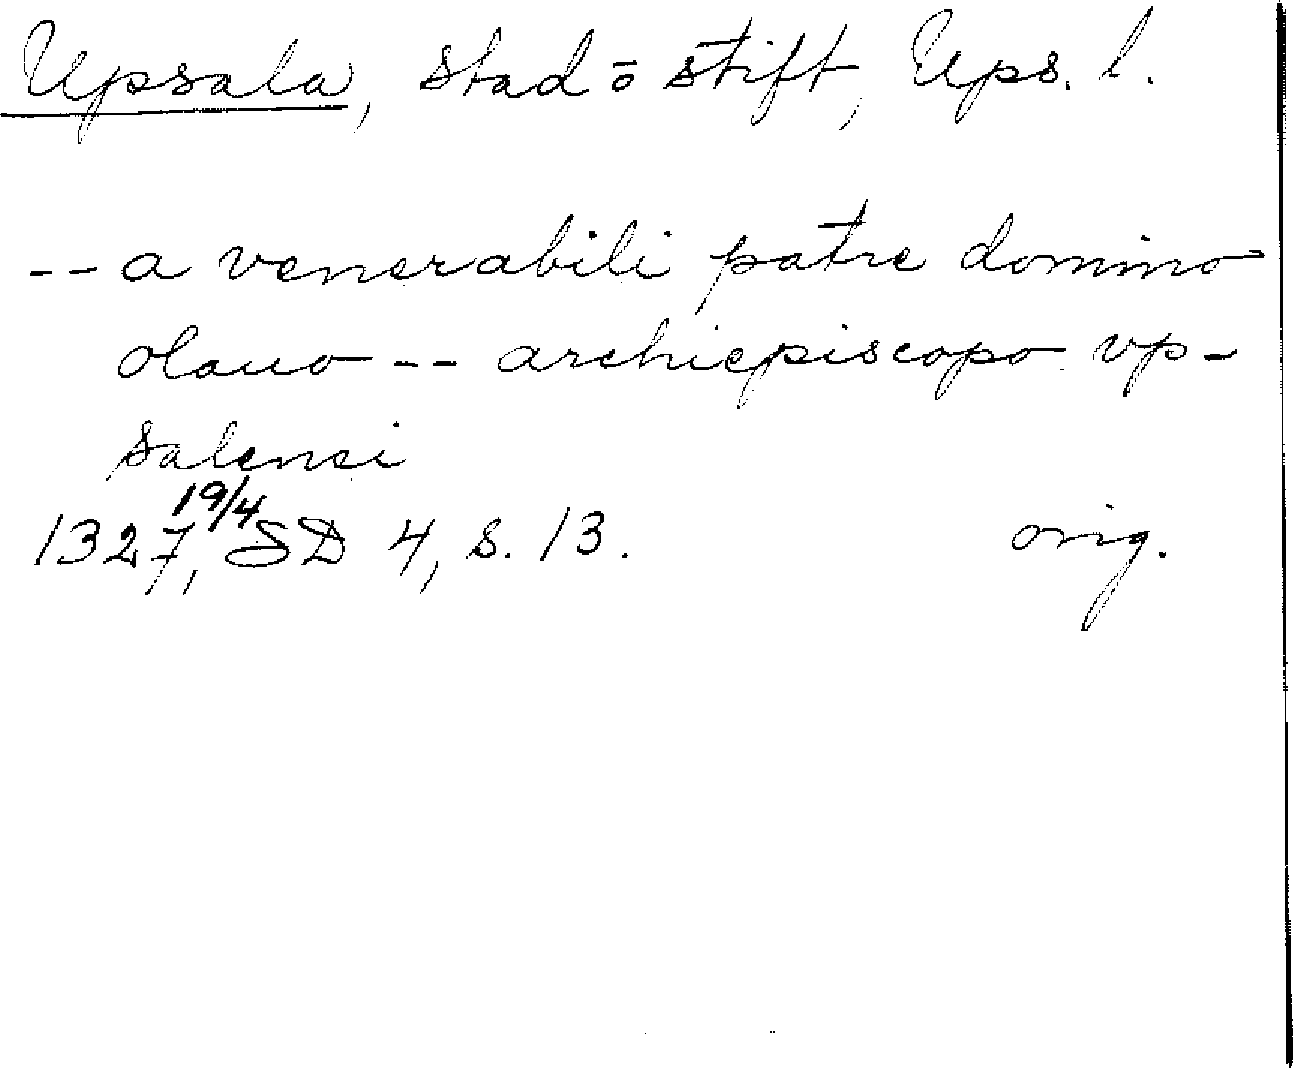 Upsala, stad ō stift, Ups. l.
-- a venerabili patre domino
olauo -- archiepiscopo vp-
salensi
1327, 19/4 SD 4, s. 13. orig.